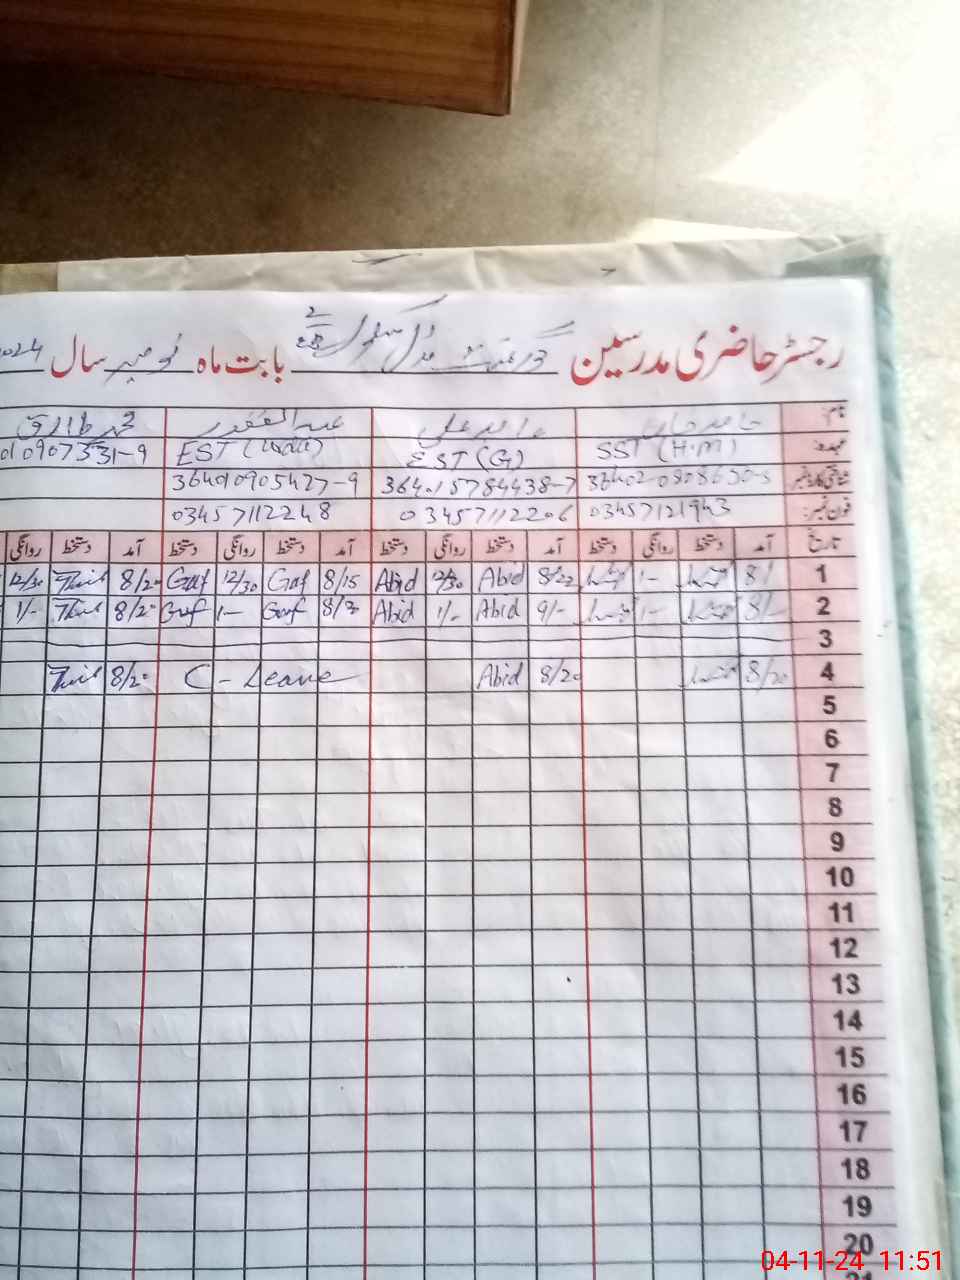 رجسٹر حاضری مدرسین گورنمنٹ مڈل سکول بابت ماہ نومبر سال 2024
نام: عابد علی عبدالغفور محمد طارق
عہدہ: SST (H.M) EST (G) EST 010907331-9
شناختی کارڈ نمبر 364015784438-7 364010905427-9
فون نمبر: 03457121943 03457112206 03457112248
تاریخ آمد دستخط روانگی دستخط آمد دستخط روانگی دستخط آمد دستخط روانگی دستخط آمد دستخط روانگی
1 8/ 1- 8/22 Abid 12/30 Abid 8/15 Gaf 12/30 Gaf 8/20 12/30
2 8/- 1- 9/- Abid 1/- Abid 8/3 Gaf 1- Gaf 8/20 1/-
3
4 8/20 8/20 Abid C - Leave 8/20
5
6
7
8
9
10
11
12
13
14
15
16
17
18
19
20
21
04-11-24 11:51